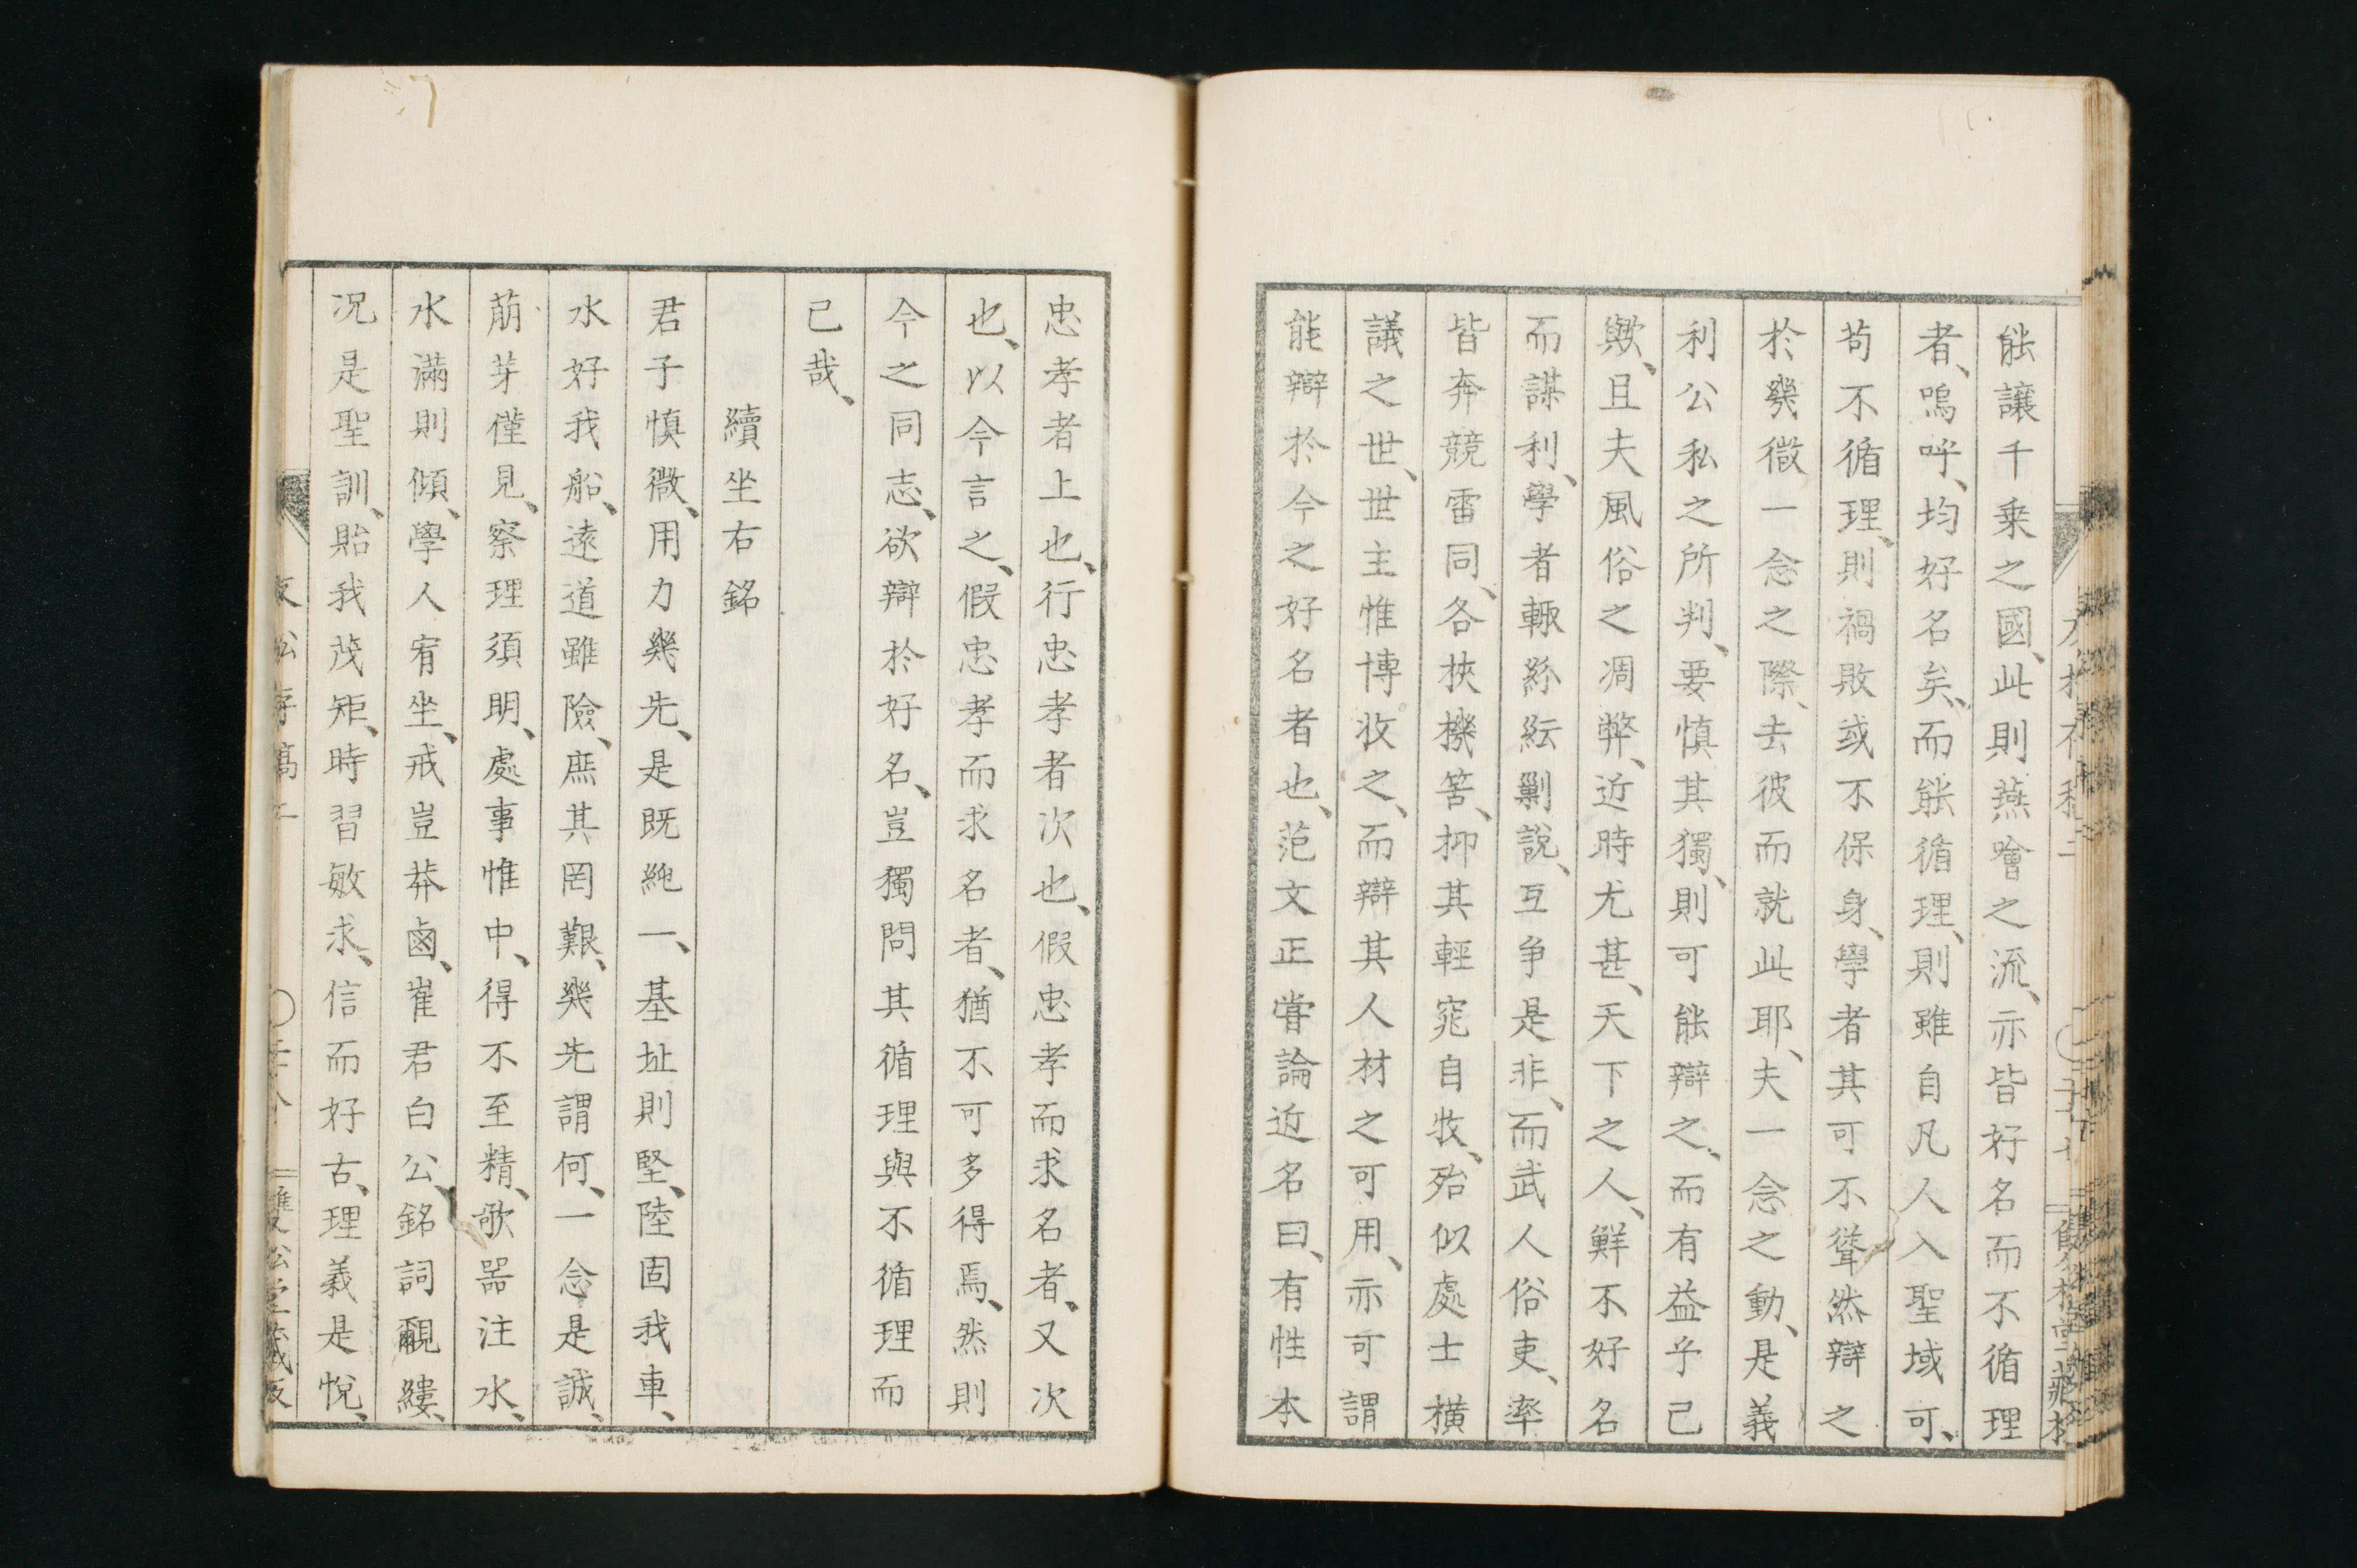 能讓千乗之國、此則燕噲之流、亦皆好名而不循理
者、嗚呼、均好名矣、而能循理、則雖自凡人入聖域可、
苟不循理、則禍敗或不保身、學者其可不聳然辯之
於幾微一念之際、去彼而就此耶、夫一念之動、是義
利公私之所判、要慎其獨、則可能辯之、而有益乎己
歟、且夫風俗之凋弊、近時尤甚、天下之人、鮮不好名
而謀利、學者輙紛紜剿説、互争是非、而武人俗吏、率
皆奔競雷同、各挾機筈、抑其輕窕自牧、殆似處士横
議之世、世主惟博收之、而辯其人材之可用、亦可謂
能辯於今之好名者也、范文正嘗論近名曰、有性本
忠孝者上也、行忠孝者次也、假忠孝而求名者、又次
也、以今言之、假忠孝而求名者、猶不可多得焉、然則
今之同志、欲辯於好名、豈獨問其循理與不循理而
已哉、
續坐右銘
君子慎微、用力幾先、是既純一、基址則堅、陸固我車、
水好我船、遠道雖險、庶其罔艱、幾先謂何、一念是誠、
萠芽僅見、察理須明、處事惟中、得不至精、欹器注水、
水滿則傾、學人宥坐、戒豈莽鹵、崔君白公、銘詞覼縷、
况是聖訓、貽我茂矩、時習敏求、信而好古、理義是悅、